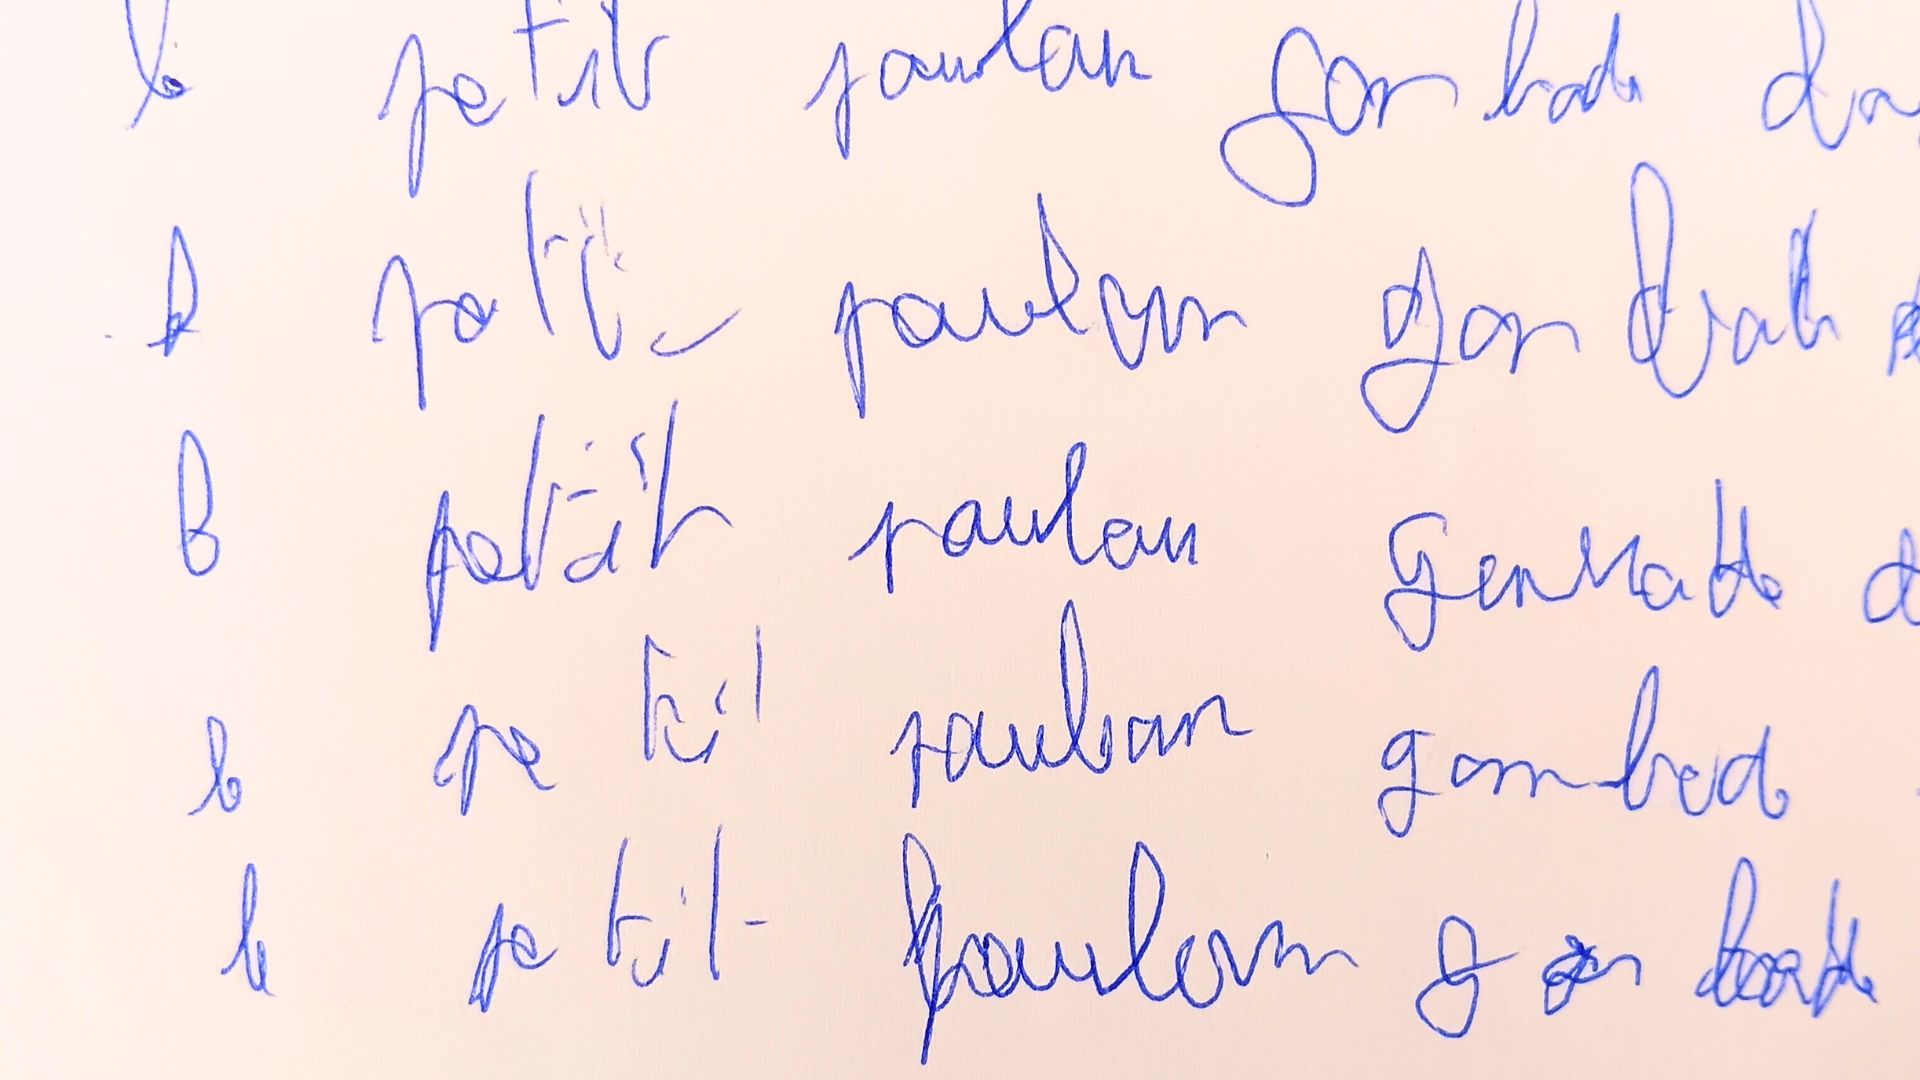 le petit poulan gambade da
le petit poulan gambade
le petit poulan gambade d
le petit poulan gambade
le petit poulan gambade